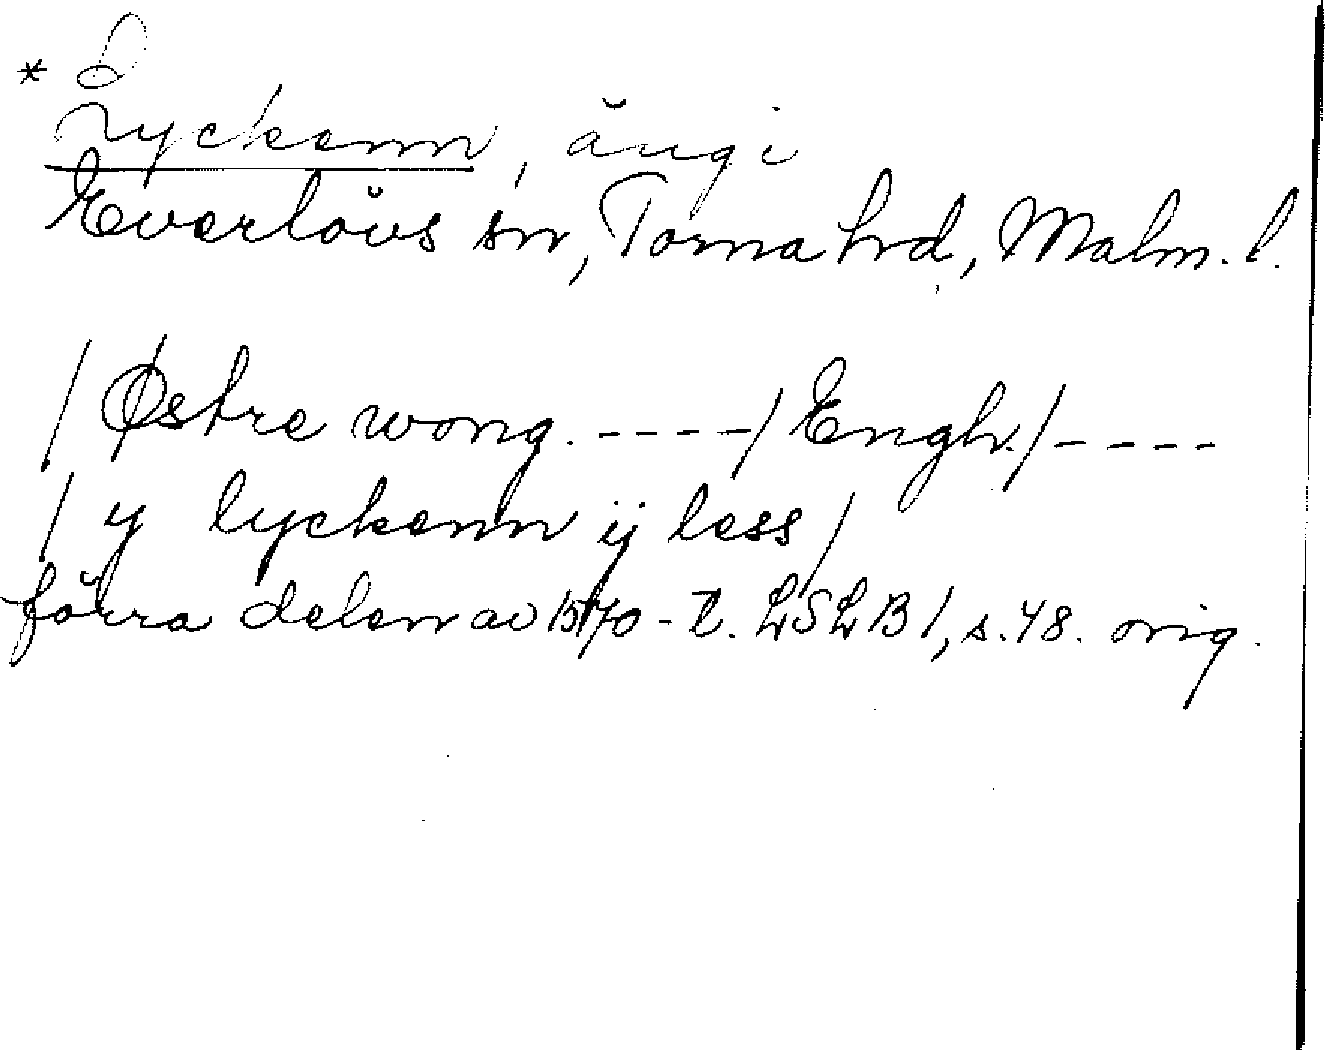 * Lyckenn, äng i
Everlövs sn, Torna hrd, Malm. l.
/ Østre wong. ----/ Engh./----
/ y lyckenn ij less /
förra delen av 1570-t. LSLB 1, s. 48. orig.